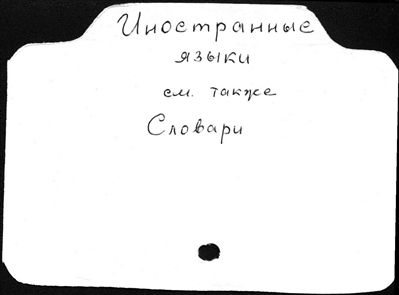 Иностранные
языки
см. также
Словари